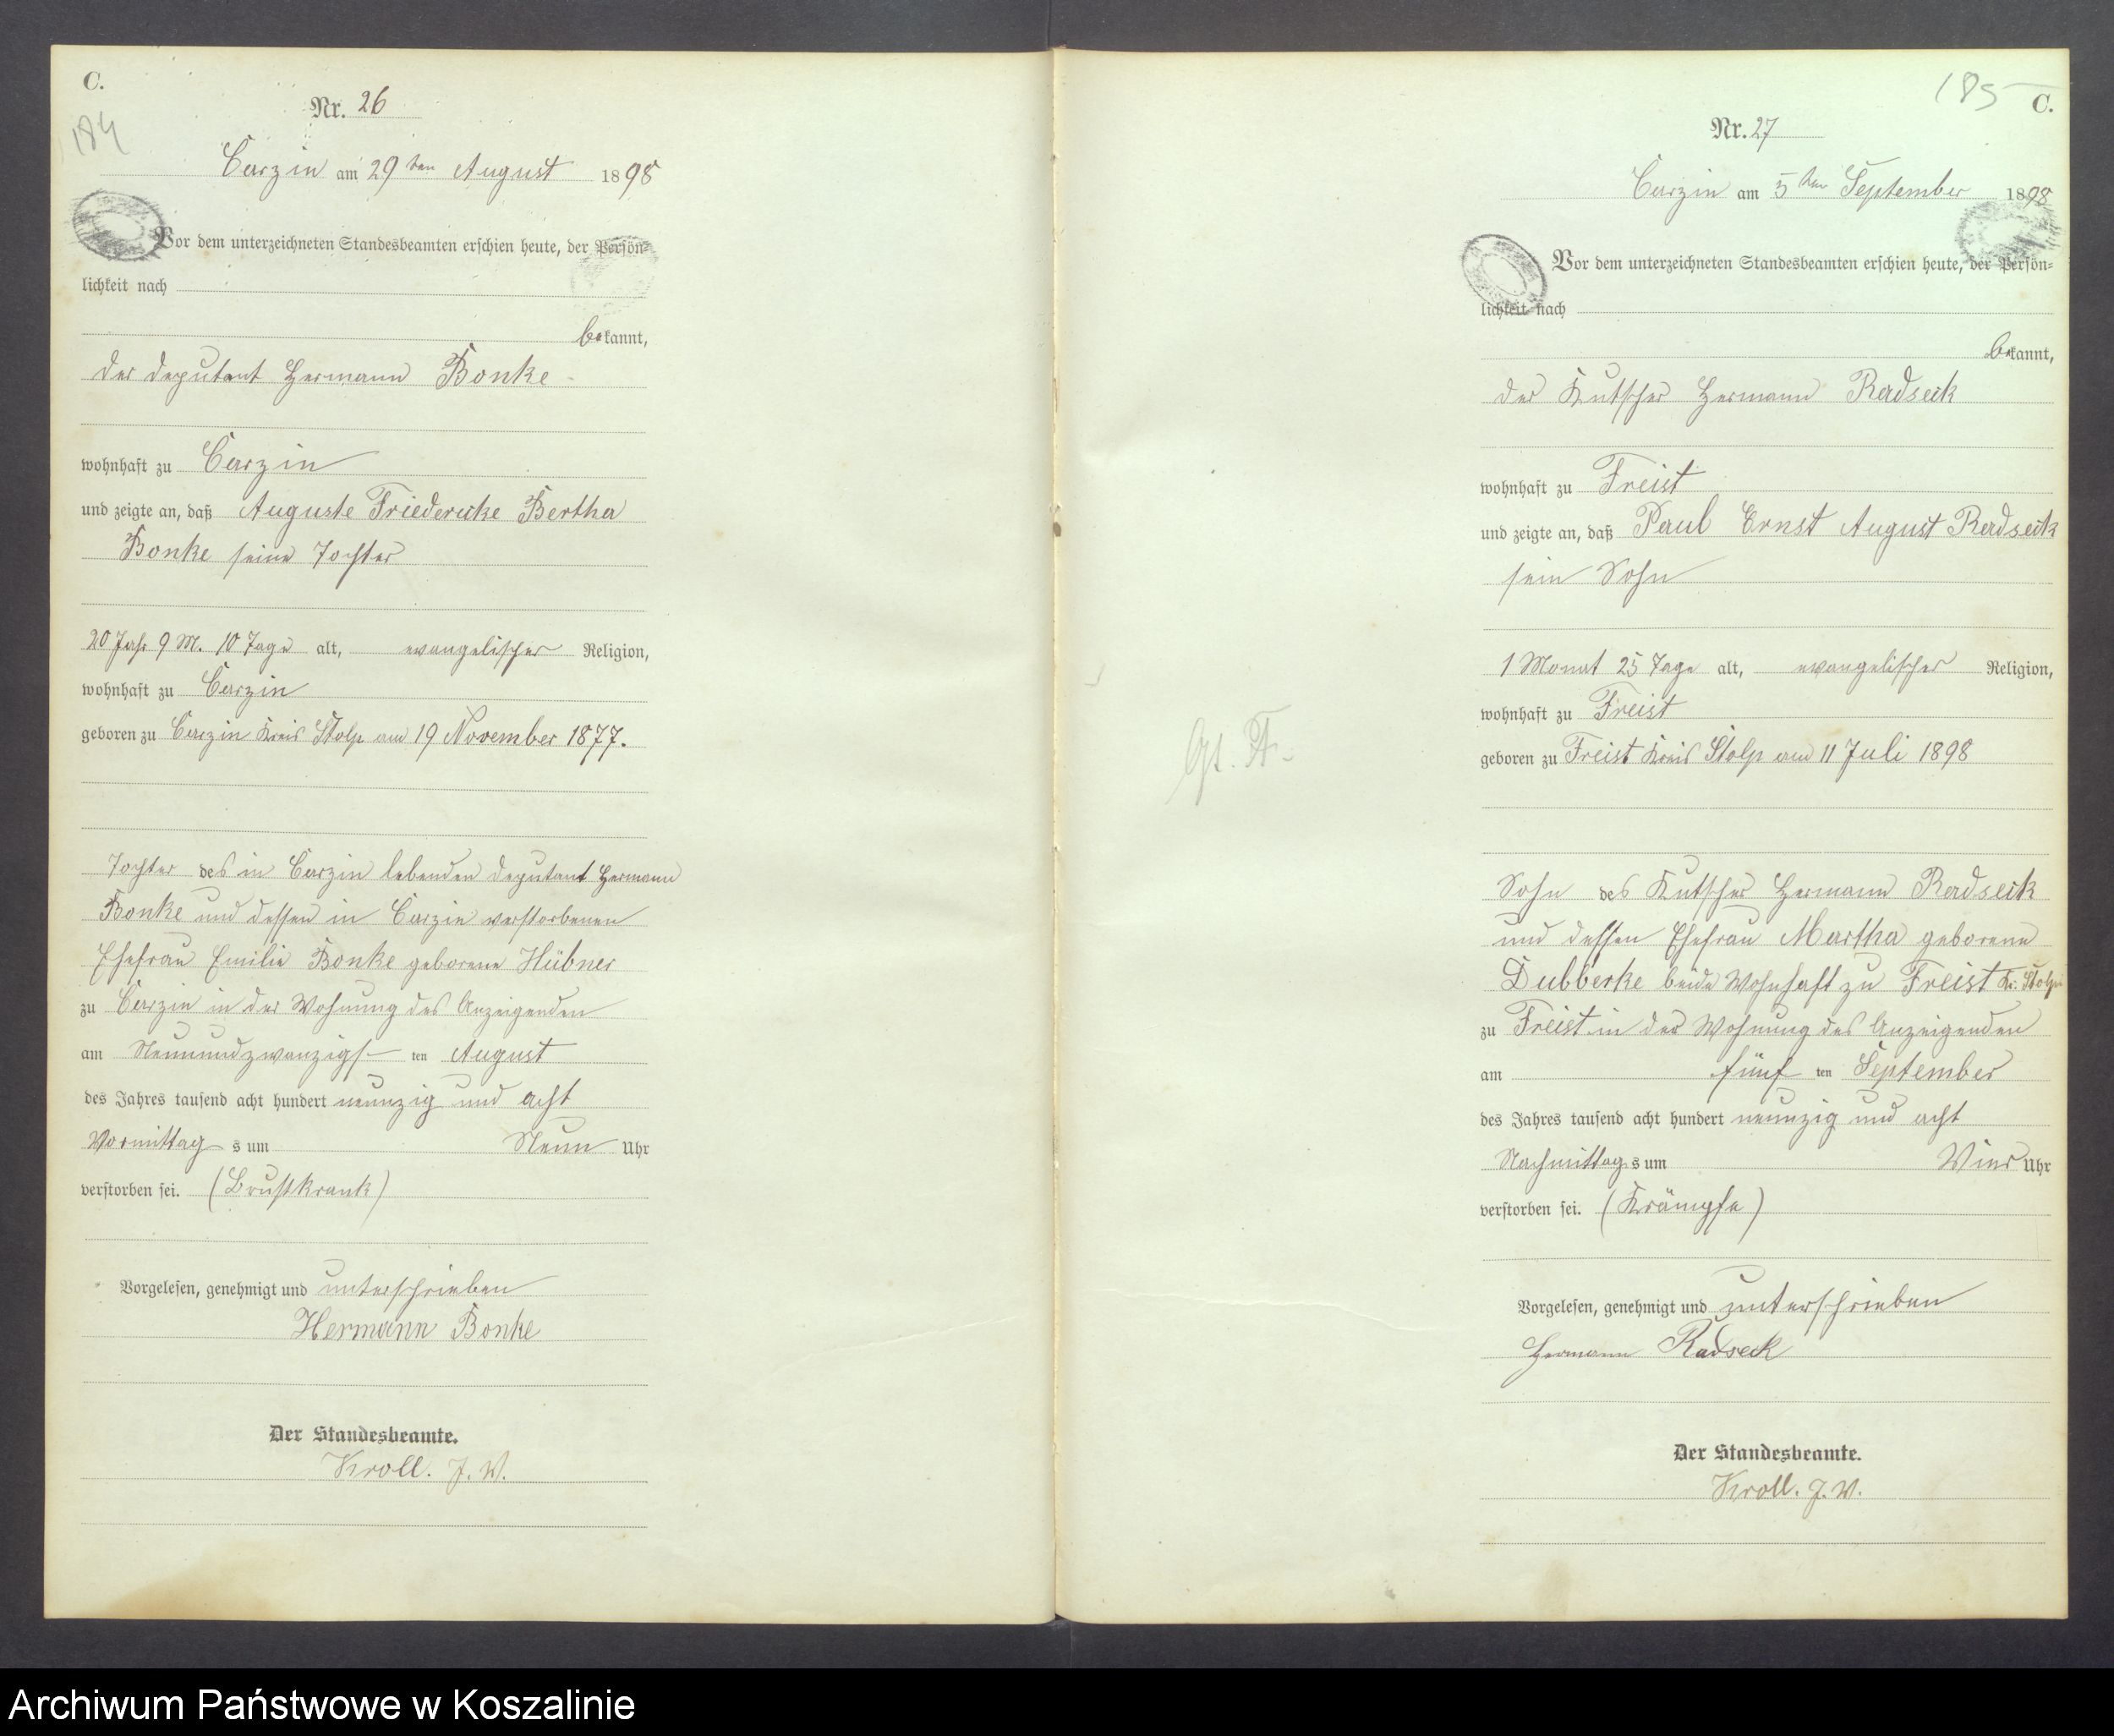 C.
184
Nr. 26
Carzin am 29ten August 1898
Vor dem unterzeichneten Standesbeamten erschien heute, der Persön-
lichkeit nach
bekannt,
der Deputant Hermann Bonke
wohnhaft zu Carzin
und zeigte an, daß Auguste Friedericke Bertha
Bonke seine Tochter
20 Jahr 9 M. 10 Tage alt, evangelischer Religion,
wohnhaft zu Carzin
geboren zu Carzin Kreis Stolp am 19 November 1877.
Tochter des in Carzin lebenden Deputant Hermann
Bonke und dessen in Carzin verstorbenen
Ehefrau Emilie Bonke geborene Hübner
zu Carzin in der Wohnung des Anzeigenden
am Neunundzwanzigsten August
des Jahres tausend acht hundert neunzig und acht
Vormittags um Neun Uhr
verstorben sei. (Brustkrank)
Vorgelesen, genehmigt und unterschrieben
Hermann Bonke
Der Standesbeamte.
Kroll. J. V.
185
C.
Nr. 27
Carzin am 5ten September 1898
Vor dem unterzeichneten Standesbeamten erschien heute, der Persön-
lichkeit nach
bekannt,
der Kutscher Hermann Radseck
wohnhaft zu Freist
und zeigte an, daß Paul Ernst August Radseck
sein Sohn
1 Monat 25 Tage alt, evangelischer Religion,
wohnhaft zu Freist
geboren zu Freist Kreis Stolp am 11 Juli 1898
Sohn des Kutscher Hermann Radseck
und dessen Ehefrau Martha geborene
Dubberke beide Wohnhaft zu Freist Kr. Stolp
zu Freist in der Wohnung des Anzeigenden
am fünften September
des Jahres tausend acht hundert neunzig und acht
Nachmittags um Vier Uhr
verstorben sei. (Krämpfe)
Vorgelesen, genehmigt und unterschrieben
Hermann Radseck
Der Standesbeamte.
Kroll. J. V.
Archiwum Państwowe w Koszalinie